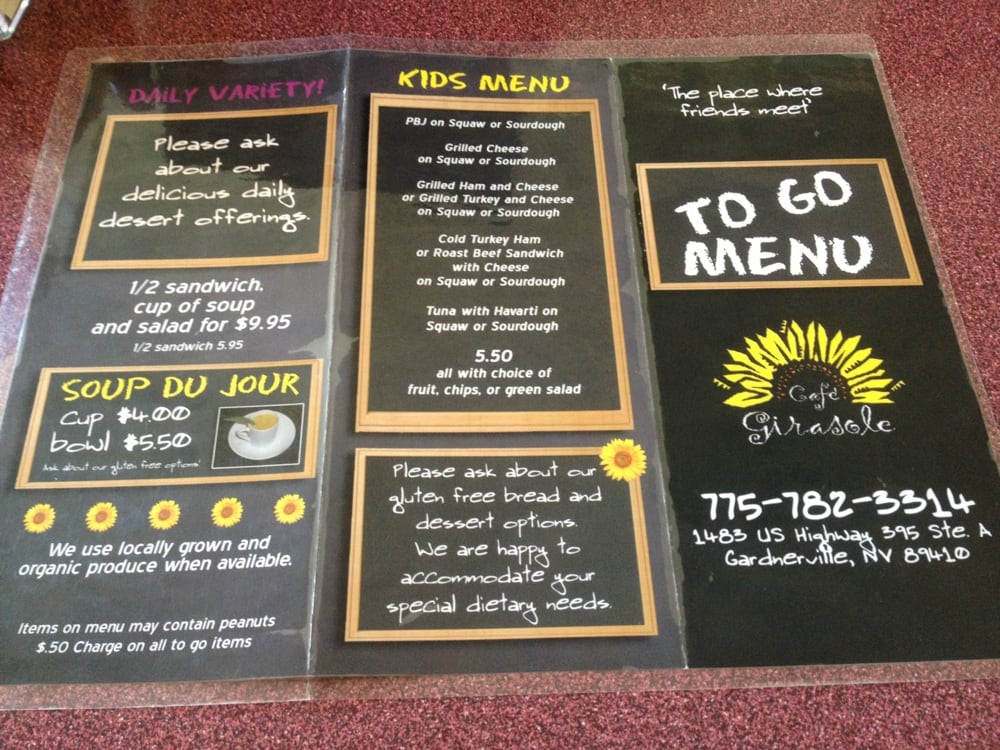 DAILY VARIETY!
Please ask
about our
delicious daily
desert offerings.
1/2 sandwich,
cup of soup
and salad for $9.95
1/2 sandwich 5.95
SOUP DU JOUR
cup $4.00
bowl $5.50
Ask about our gluten free options!
We use locally grown and
organic produce when available.
Items on menu may contain peanuts
$.50 Charge on all to go items
KIDS MENU
PBJ on Squaw or Sourdough
Grilled Cheese
on Squaw or Sourdough
Grilled Ham and Cheese
or Grilled Turkey and Cheese
on Squaw or Sourdough
Cold Turkey Ham
or Roast Beef Sandwich
with Cheese
on Squaw or Sourdough
Tuna with Havarti on
Squaw or Sourdough
5.50
all with choice of
fruit, chips, or green salad
Please ask about our
gluten free bread and
dessert options.
We are happy to
accommodate your
special dietary needs.
'The place where
friends meet'
TO GO
MENU
Café
Girasole
775-782-3314
1483 US Highway 395 Ste. A
Gardnerville, NV 89410